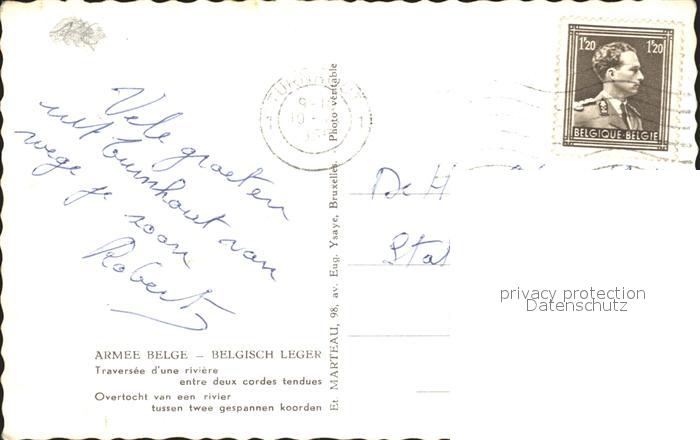 Vele groeten
uit Turnhout van
wege je zoon
Robert
ARMEE BELGE – BELGISCH LEGER
Traversée d'une rivière
entre deux cordes tendues
Overtocht van een rivier
tussen twee gespannen koorden
Et. MARTEAU, 98, av. Eug. Ysaye, Bruxelles. Photo véritable
1F20 1F20
BELGIQUE·BELGIE
De H
Stat
privacy protection
Datenschutz